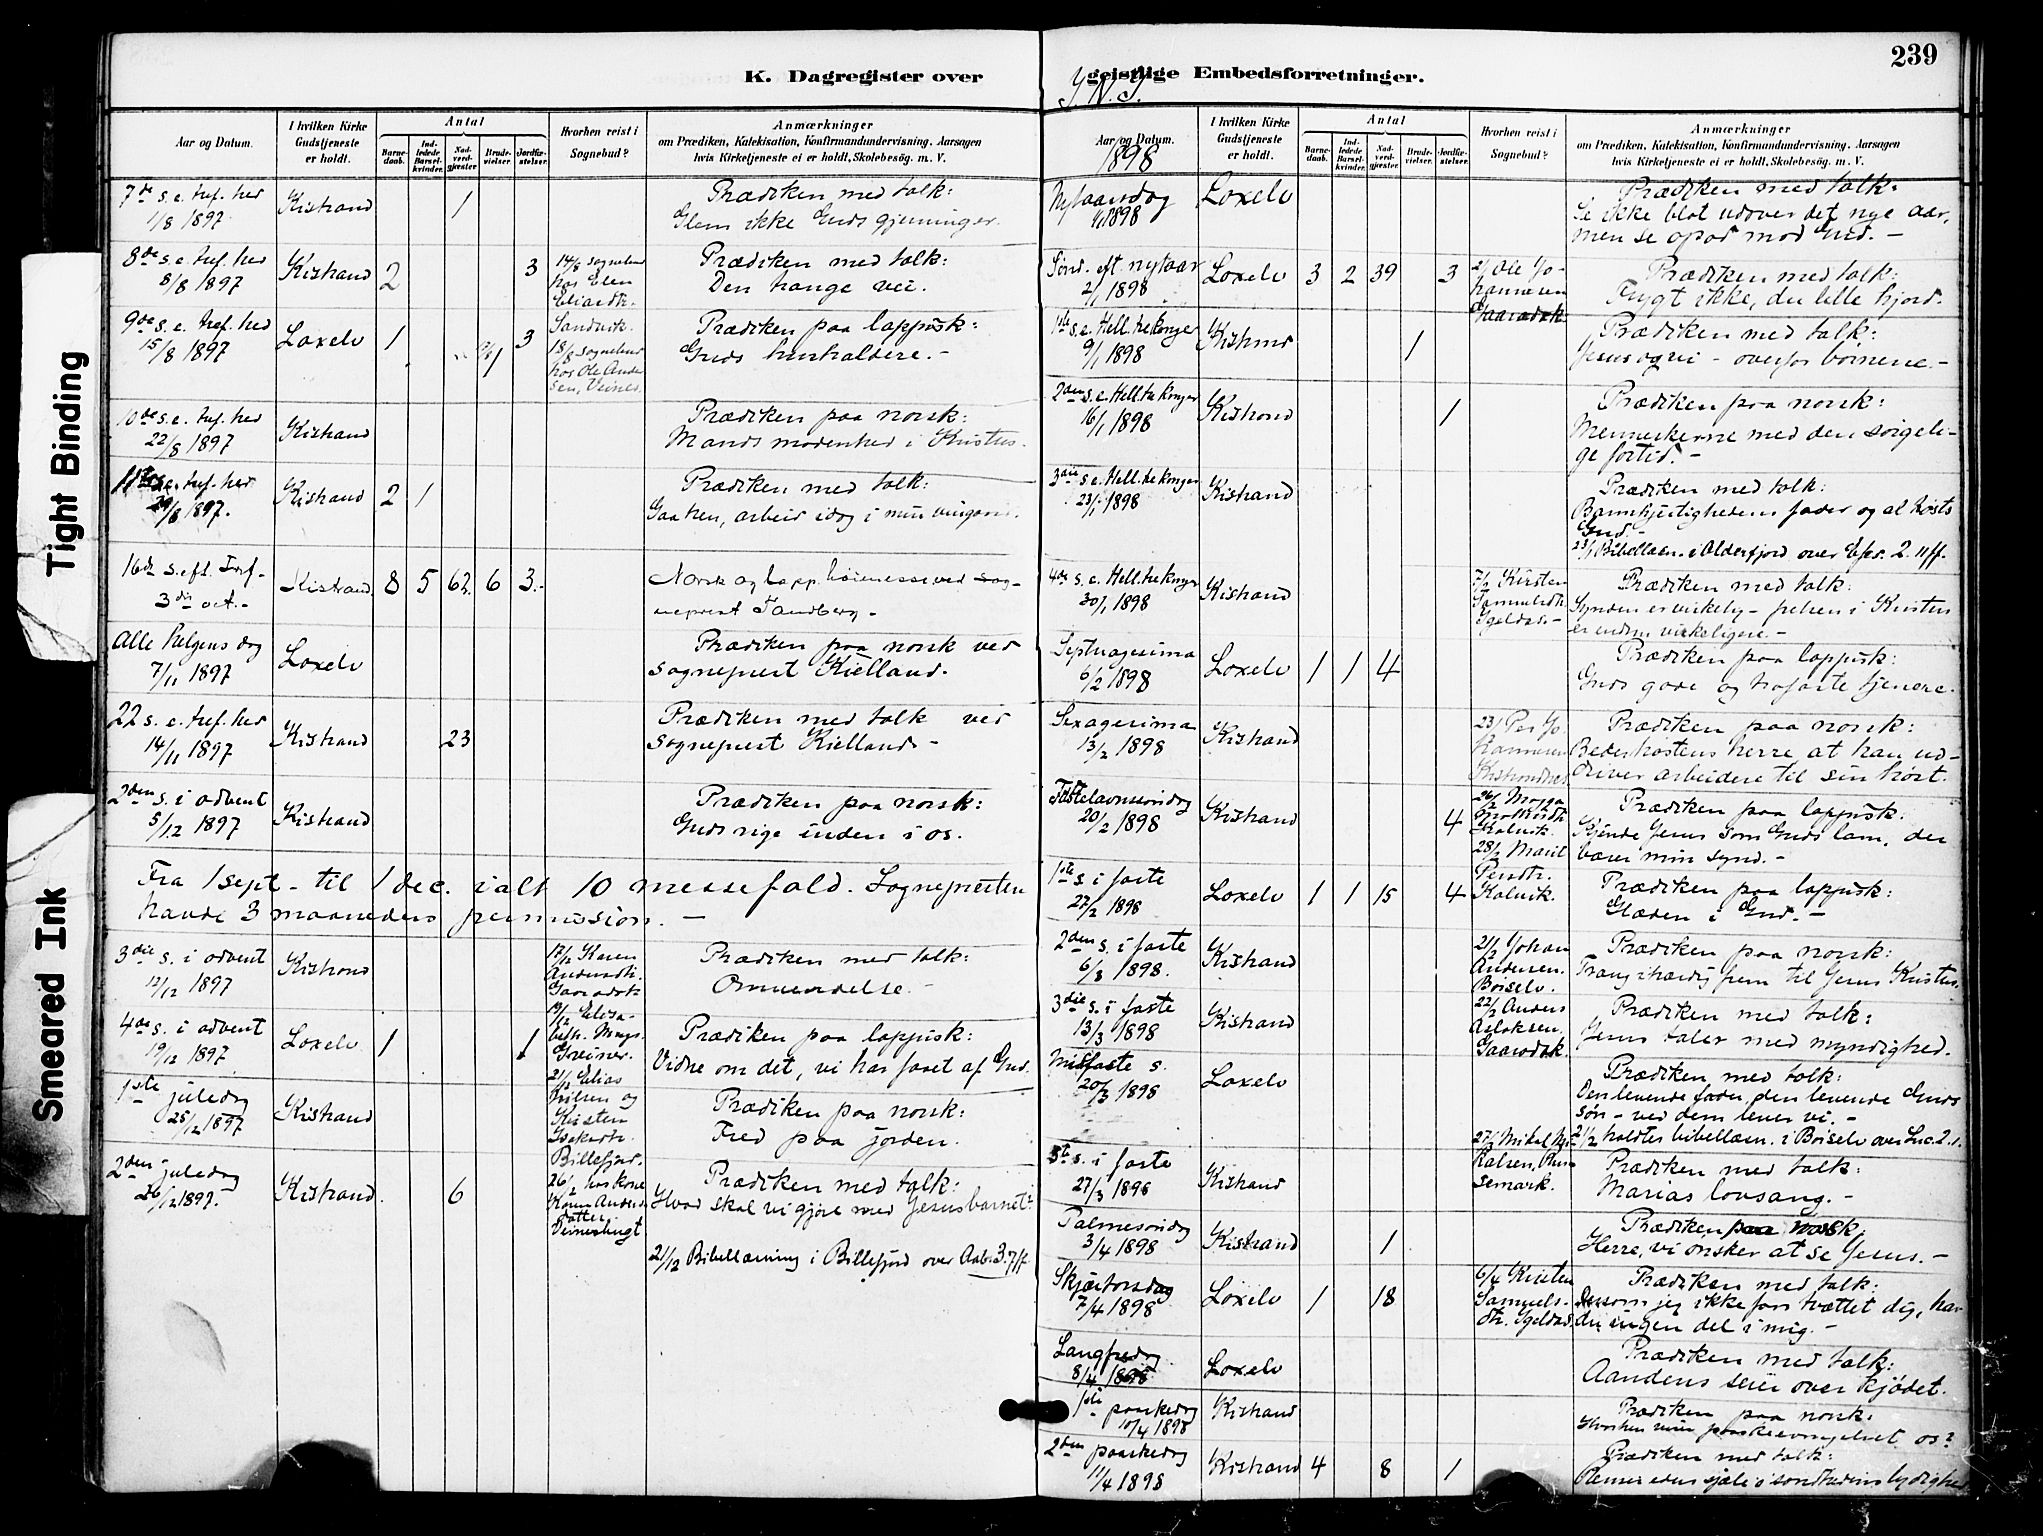 Tight Binding
Smeared Ink
K. Dagregister over
Aar og Datum.
I hvilken Kirke Gudstjeneste er holdt.
Antal
Barnedaab.
Indledede Barselkvinder.
Nadverdgjæster.
Brudevielser.
Jordfæstelser.
Hvorhen reist i Sognebud?
Anmærkninger
om Prædiken, Katekisation, Konfirmandundervisning. Aarsagen
hvis Kirketjeneste ei er holdt, Skolebesög. m. V.
7de s. e. tref. hed
1/8 1897
Kistrand
1
Prædiken med tolk:
Glem ikke Guds gjerninger.
8de s. e. tref. hed
8/8 1897
Kistrand
2
3
14/8 sognebud
hos Elen
Prædiken med tolk:
Den trange vei.
9de s. e. tref. hed
15/8 1897
Loxelv
1
1
3
Sandvik.
18/8 sognebud
hos Ole Andersen, Veines.
Prædiken paa lappisk:
Guds husholdere.-
10de s. e. tref. hed
22/8 1897
Kistrand
Prædiken paa norsk:
Mands modenhed i Kristus.
11te s. e. tref. hed
29/8 1897.
Kistrand
2
1
Prædiken med tolk:
Gaa hen, arbeid idag i min vingaard.
16de s. eft. Tref.
3die oct.-
Kistrand
8
5
62
6
3.
Norsk og lapp. høimesse ved sogneprest Sandberg -
Alle helgens dag
7/11 1897
Loxelv
Prædiken paa norsk ved
sogneprest Kielland.
22 s. e. tref. hed
14/11 1897
Kistrand
23
Prædiken med tolk ved
sogneprest Kielland -
2den s. i advent
5/12 1897
Kistrand
Prædiken paa norsk:
Guds rige inden i os.
Fra 1 sept - til 1 dec. ialt 10 messefald. Sognepresten
havde 3 maaneders permission. -
3die s. i advent
12/12 1897
Kistrand
12/12 Karen
Andersdtr.
Prædiken med tolk:
Omvendelse. -
4de s. i advent
19/12 1897
Loxelv
1
1
Prædiken paa lappisk:
Vidne om det, vi har faaet af Gud.
1ste juledag
25/12 1897
Kistrand
21/12 Elias
Nilsen og
Kirsten
Isaksdtr.
Billefjord.
Prædiken paa norsk:
Fred paa jorden.
2den juledag
26/12 1897.
Kistrand.
6
Prædiken med tolk:
Hvad skal vi gjøre med Jesusbarnet?
21/12 Bibellæsning i Billefjord over Aab. 3. 7 ff.
239
geistlige Embedsforretninger.
J. N. J.
Aar og Datum.
1898
I hvilken Kirke Gudstjeneste er holdt.
Antal
Barnedaab.
Indledede Barselkvinder.
Nadverdgjæster.
Brudevielser.
Jordfæstelser.
Hvorhen reist i Sognebud?
Anmærkninger
om Prædiken, Katekisation, Konfirmandundervisning. Aarsagen
hvis Kirketjeneste ei er holdt, Skolebesög. m. V.
Nytaarsdag
1/1 1898
Loxelv
Prædiken med tolk:
Se ikke blot udover det nye aar,
men se opad mod Gud. -
Sønd. eft. nytaar
2/1 1898
Loxelv
3
2
39
3
2/1 Ole Johannesen
Prædiken med tolk:
Frygt ikke, du lille hjord.
1ste s. e. Hell. tre konger
9/1 1898
Kistrand
1
Prædiken med tolk:
Jesus og vi - overfor børnene. -
2den s. e. Hell. tre konger
16/1 1898
Kistrand
1
Prædiken paa norsk:
Menneskerne med den sørgelige fortid. -
3die s. e. Hell. tre konger
23/1 1898
Kistrand
Prædiken med tolk:
Barmhjertighedens fader og al trøsts
Gud. -
23/1 Bibellæsn. i Olderfjord over Efes. 2. 11 ff.
4de s. e. Hell. tre konger
30/1 1898
Kistrand
7/2 Kirsten
Samuelsdtr.
Prædiken med tolk:
Synden er virkelig -
er endnu virkeligere. -
Septuagesima
6/2 1898
Loxelv
1
1
4
Prædiken paa lappisk:
Guds gode og trofaste tjenere.
Sexagesima
13/2 1898
Kistrand
Prædiken paa norsk:
Beder høstens herre at han uddriver arbeidere til sin høst.
Fastelavnssøndag
20/2 1898
Kistrand
4
28/2 Marit
Persdtr.
Kolvik.
Prædiken paa lappisk:
Kjende Jesus som Guds lam, der
bærer min synd. -
1ste s. i faste
27/2 1898
Loxelv
1
1
15
4
Prædiken paa lappisk:
Glæden i Gud. -
2den s. i faste
6/3 1898.
Kistrand
21/2 Johan
Andersen.
Børselv.
Prædiken paa norsk:
Trang ihærdig frem til Jesus Kristus.
3die s. i faste
13/3 1898
Kistrand
22/2 Anders
Aslaksen.
Prædiken med tolk:
Jesus taler med myndighed.
Midfaste s.
20/3 1898
Loxelv
Prædiken med tolk:
Den levende fader, den levende Guds
søn - ved dem lever vi. -
21/2 holdtes bibellæsn. i Børselv over Luc. 2.
5te s. i faste
27/3 1898
Kistrand
Prædiken med tolk:
Marias lovsang. -
Palmesøndag
3/4 1898
Kistrand
1
Prædiken paa norsk:
Herre, vi ønsker at se Jesus. -
Skjærtorsdag
7/4 1898
Loxelv
1
18
6/4 Kirsten
Samuelsdtr.
Prædiken med tolk:
Dersom jeg ikke faar tvættet dig, har
du ingen del i mig. -
Langfredag
8/4 1898
Loxelv
Prædiken med tolk:
Aandens seier over kjødet.
1ste paaskedag
10/4 1898
Kistrand
Prædiken paa norsk:
Hvorhen viser paaskeevangeliet os?
2den paaskedag
11/4 1898
Kistrand
4
8
1
Prædiken med tolk:
Renser eders sjæle i sandhedens lydighed